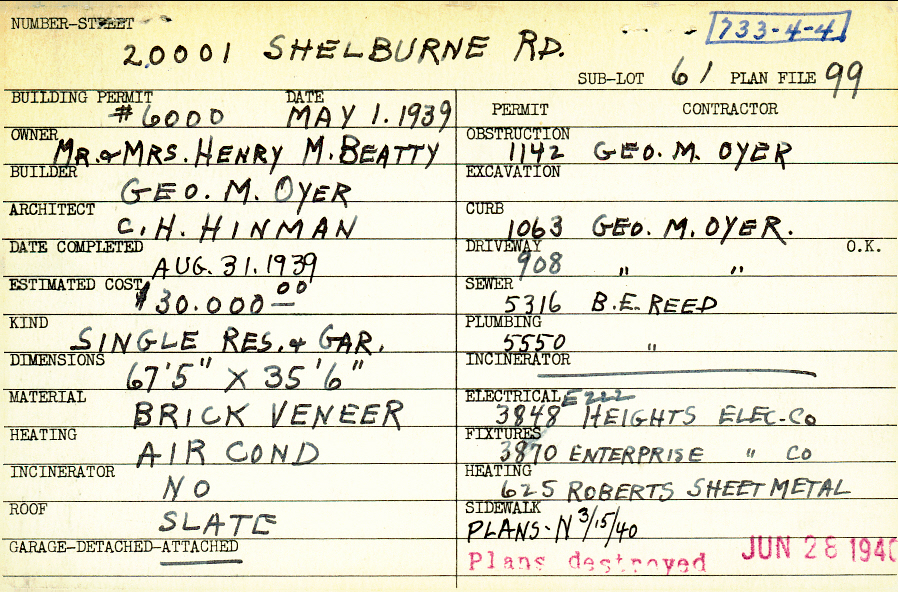 NUMBER-STREET
733-4-4
20001 SHELBURNE RD.
SUB-LOT 61 PLAN FILE 99
BUILDING PERMIT DATE
#6000 MAY 1. 1939
OWNER
MR. & MRS. HENRY M. BEATTY
BUILDER
GEO. M. OYER
ARCHITECT
C. H. HINMAN
DATE COMPLETED
AUG. 31. 1939
ESTIMATED COST
$30.000 00
KIND
SINGLE RES. & GAR.
DIMENSIONS
67'5" X 35'6"
MATERIAL
BRICK VENEER
HEATING
AIR COND
INCINERATOR
NO
ROOF
SLATE
GARAGE-DETACHED-ATTACHED
PERMIT CONTRACTOR
OBSTRUCTION
1142 GEO. M. OYER
EXCAVATION
CURB
1063 GEO. M. OYER.
DRIVEWAY O.K.
908 " "
SEWER
5316 B.E. REED
PLUMBING
5550 "
INCINERATOR
ELECTRICAL E222
3848 HEIGHTS ELEC-CO
FIXTURES
3870 ENTERPRISE " CO
HEATING
625 ROBERTS SHEET METAL
SIDEWALK
PLANS-N 3/15/40
Plans destroyed JUN 28 1940